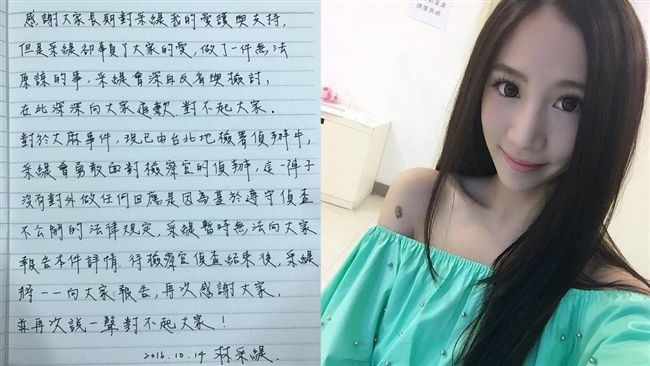 感謝大家長期對采緹我的愛護與支持,
但是采緹卻辜負了大家的愛,做了一件無法
原諒的事,采緹會深自反省與檢討,
在此深深向大家道歉,對不起大家.
對於大麻事件,現已由台北地檢署偵辦中,
采緹會勇敢面對檢察官的偵辦,這一陣子
沒有對外做任何回應是因為基於遵守偵查
不公開的法律規定,采緹暫時無法向大家
報告本件詳情,待檢察官偵查結束後,采緹
將一一向大家報告,再次感謝大家,
並再次說一聲對不起大家!
2016.10.14 林采緹